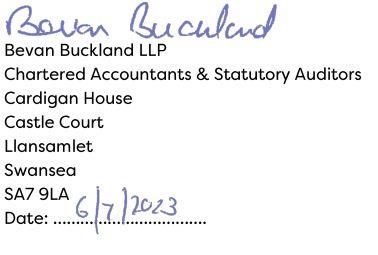 Bevan Buckland
Bevan Buckland LLP
Chartered Accountants & Statutory Auditors
Cardigan House
Castle Court
Llansamlet
Swansea
SA7 9LA
Date: 6/7/2023